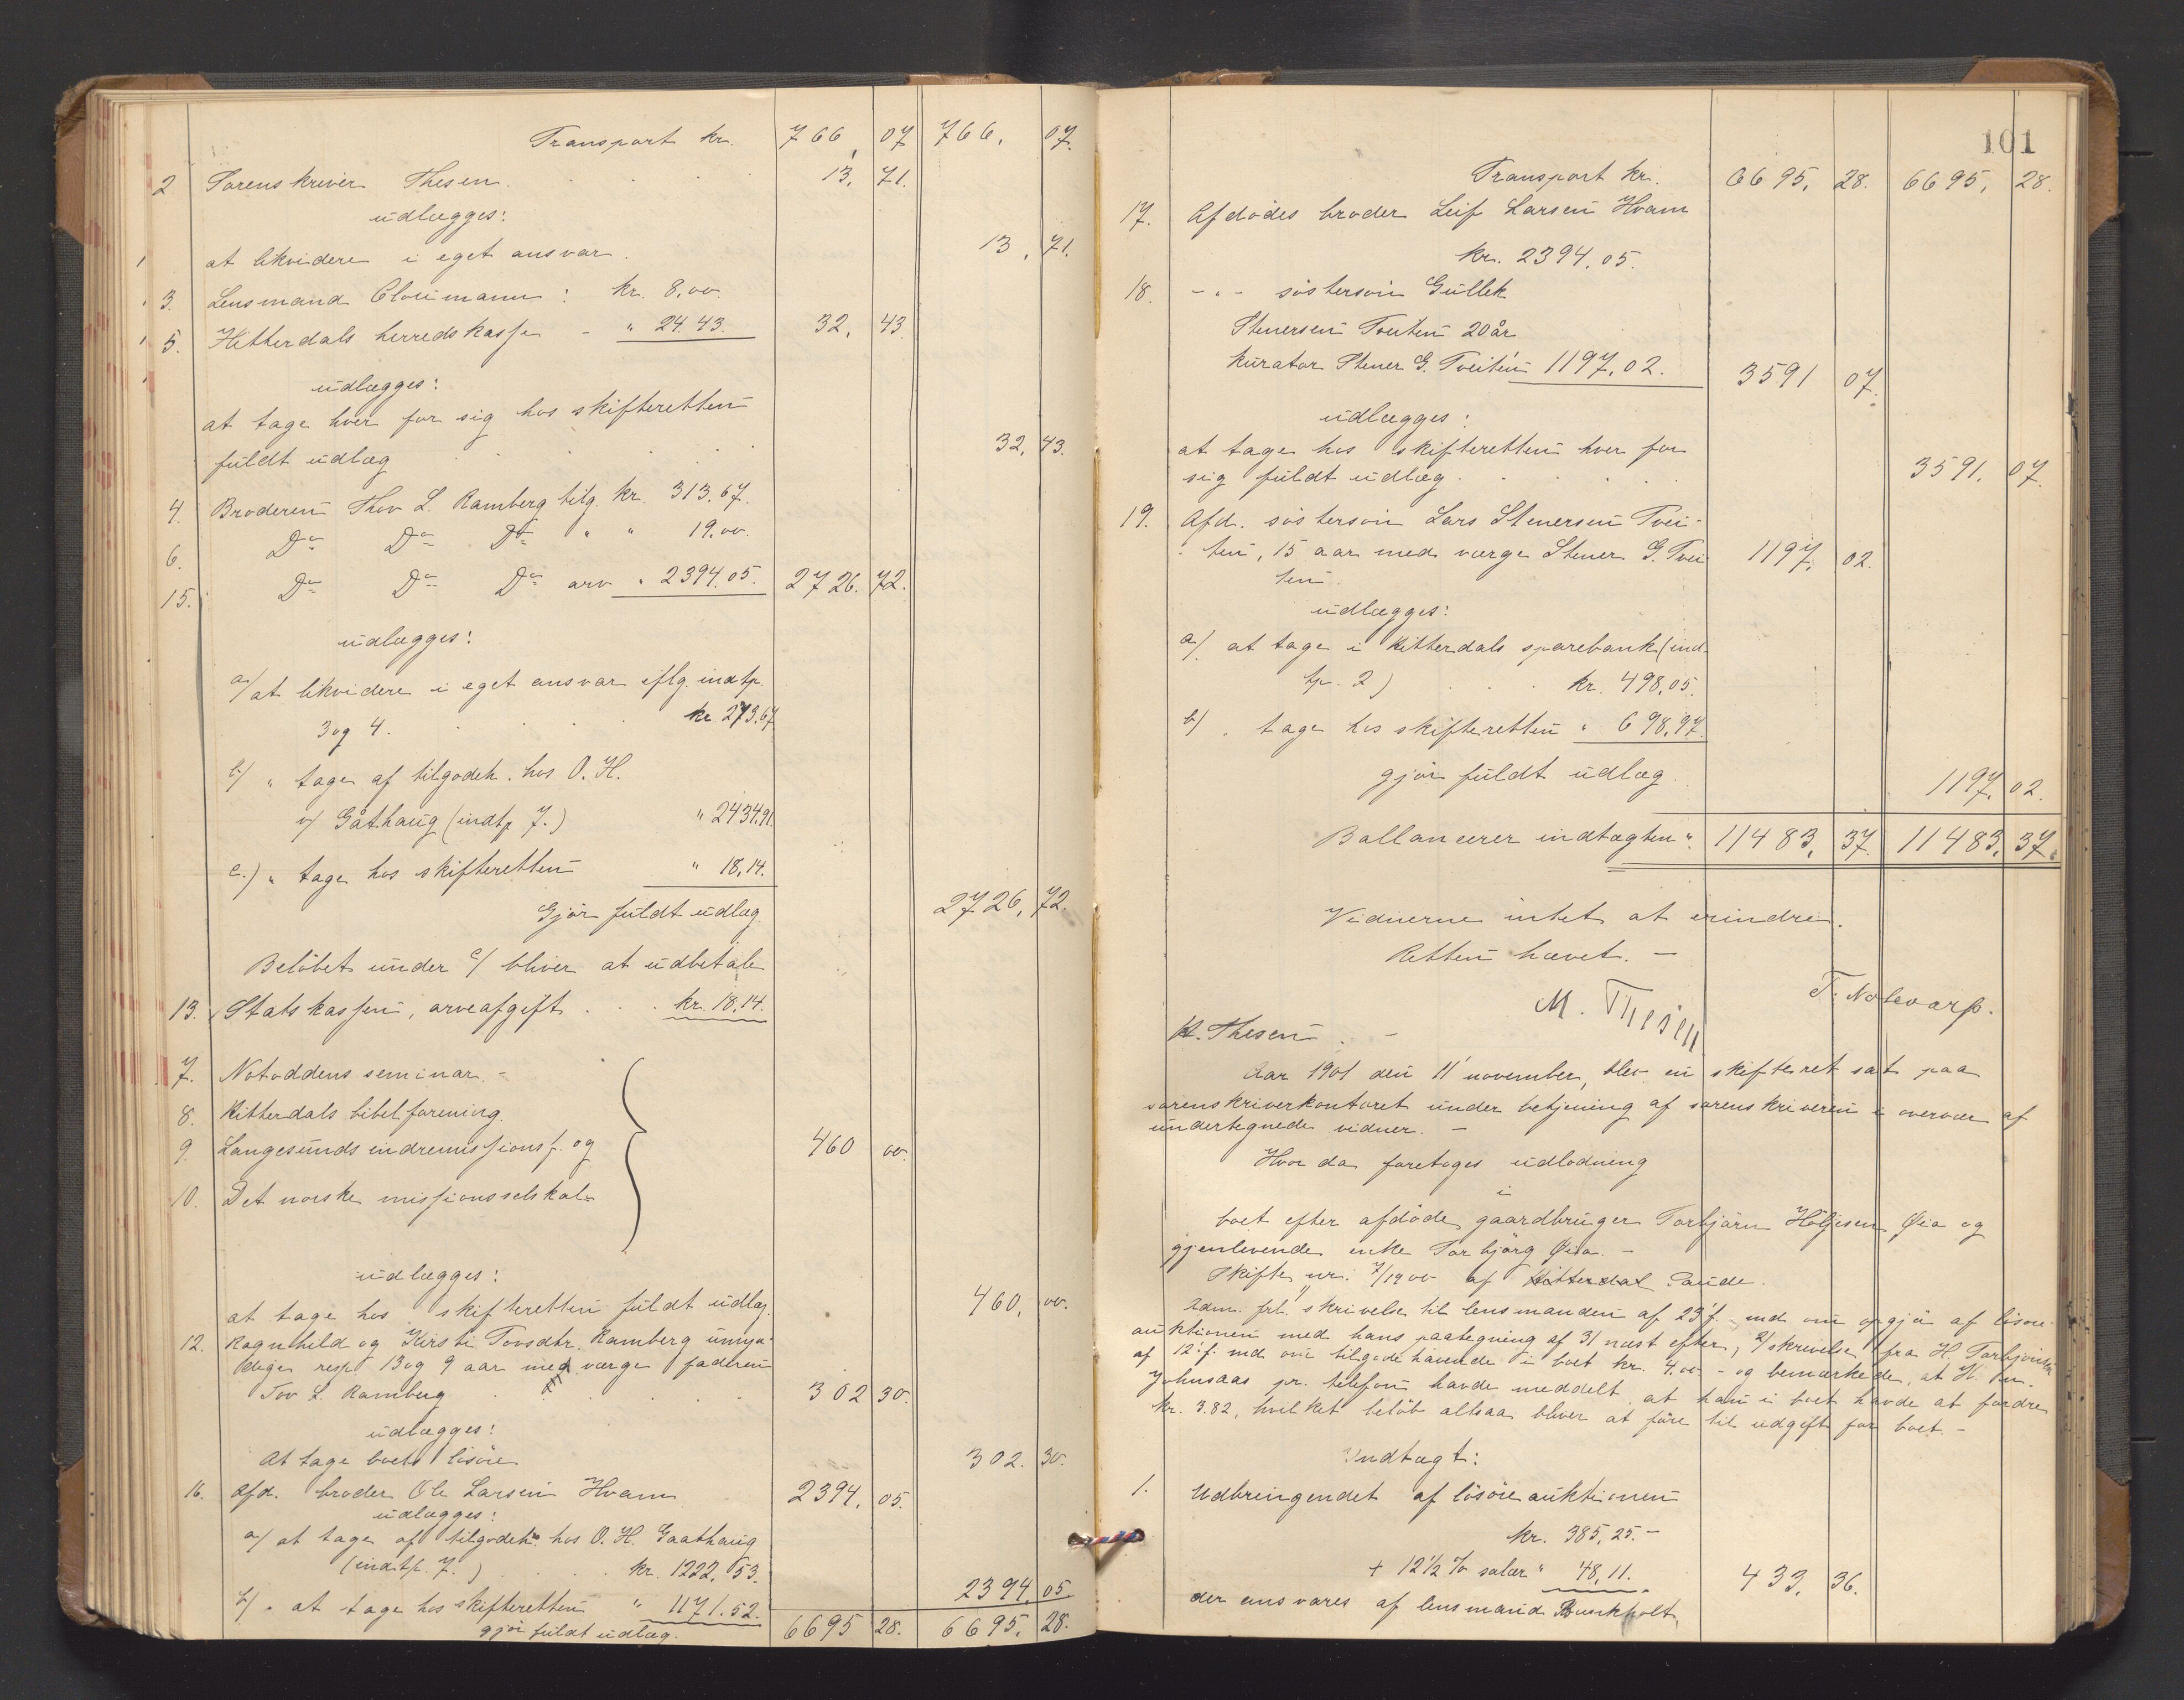 Transport kr. 766, 07 766, 07.
2 Sorenskriver Thesen . . . . 13, 71.
udlægges:
at likvidere i eget ansvar. 13, 71.
3. Lensmand Cloumann: kr. 8,00.
5. Hitterdals herredskasse - " 24.43. 32, 43
udlægges:
at tage hver for sig hos skifteretten
fuldt udlæg . . . . 32, 43.
4. Broderen Thov L. Ramberg tilg. kr. 313.67.
6. Do Do Do " " 19.00.
15. Do Do Do arv " 2394.05. 2726. 72.
udlægges:
a/ at likvidere i eget ansvar iflg. indtp.
3 og 4. . . . kr. 273.67
b/ " tage af tilgodeh. hos O. H.
v/ Gåthaug (indtp 7.) " 2434.91.
c.) " tage hos skifteretten " 18,14.
Gjør fuldt udlæg. 2726, 72.
Beløbet under c/ bliver at udbetale
13. Statskassen, arveafgift . . . kr. 18,14.
7. Notoddens seminar. -
8. Hitterdals bibelforening.
9. Langesunds indremissionsf. og 460 00.
10. Det norske missionsselskab
udlægges:
at tage hos skifteretten fuldt udlæg. 460, 00.
12. Ragnhild og Kirsti Tovsdtr. Ramberg umyn-
dige resp. 13 og 9 aar med værge faderen
Tov L. Ramberg . . . 302 30.
udlægges:
At tage boets løsøre 302. 30.
16. Afd. broder Ole Larsen Hvam 2394, 05.
udlægges:
a/ at tage af tilgodeh. hos O. H. Gaathaug
(indtp. 7.) . . . kr. 1222, 53.
b/ " at tage hos skifteretten " 1171.52. 2394, 05
gjør fuldt udlæg. 6695 28. 6695, 28.
101
Transport kr. 6695, 28. 6695, 28.
17. Afdødes broder Leif Larsen Hvam
kr. 2394,05.
18. - " - søstersøn Gullek
Stenersen Tveiten 20 år
kurator Stener G. Tveiten 1197,02. 3591 07.
udlægges:
at tage hos skifteretten hver for
sig fuldt udlæg . . . . 3591, 07.
19. Afd. søstersøn Lars Stenersen Tvei-
ten, 15 aar med værge Stener G. Tvei 1197, 02.
ten.
udlægges:
a/ at tage i Hitterdals sparebank (ind-
tp. 2) . . . kr. 498,05.
b/ " tage hos skifteretten " 698,97.
gjør fuldt udlæg. 1197, 02.
Ballancerer indtægten " 11483, 37. 11483, 37.
Vidnerne intet at erindre.
Retten hævet. -
M. Thesen T. Notevarp.
H. Thesen. -
Aar 1901 den 11' november, blev en skifteret sat paa
sorenskriverkontoret under betjening af sorenskriveren i overvær af
undertegnede vidner. -
Hvor da foretoges udlodning
i
boet efter afdøde gaardbruger Torbjørn Høljesen Øia og
gjenlevende enke Torbjørg Øia. -
Skifte nr. 7/1900 af Hitterdal Saude.
Adm. frl. 1/ skrivelse til lensmanden af 23' f. md om opgjør af løsøre-
auktionen med hans paategning af 31 næst efter, 2/ skrivelse fra H. Torbjørnsen
af 12' f. md om tilgodehavende i boet kr. 4,00. - og bemærkede, at H.
Johnsaas pr. telefon havde meddelt, at han i boet havde at fordre
kr. 3.82, hvilket beløb altsaa bliver at føre til udgift for boet. -
Indtægt:
1. Udbringendet af løsøreauktionen
kr. 385,25. -
+ 12½ % salær " 48,11. 433, 36.
der ansvares af lensmand Bunkholt